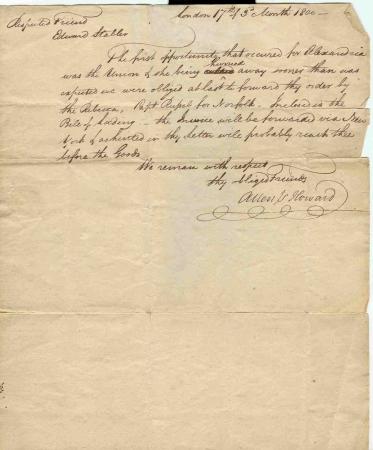 London 17th of 3d Month 1800 —
Respected Friend
Edward Stabler
The first opportunity that occured for Alexandria
was the Union & she being hurried away sooner than was
expected we were obliged at last to forward thy order by
the Rebecca, Capt for Norfolk. Inclosed is the
Bill of Lading — the Invoice will be forwarded via New
York & in thy letter will probably reach thee
before the Goods.
We remain with respect
thy obliged Friends
Allen & Howard